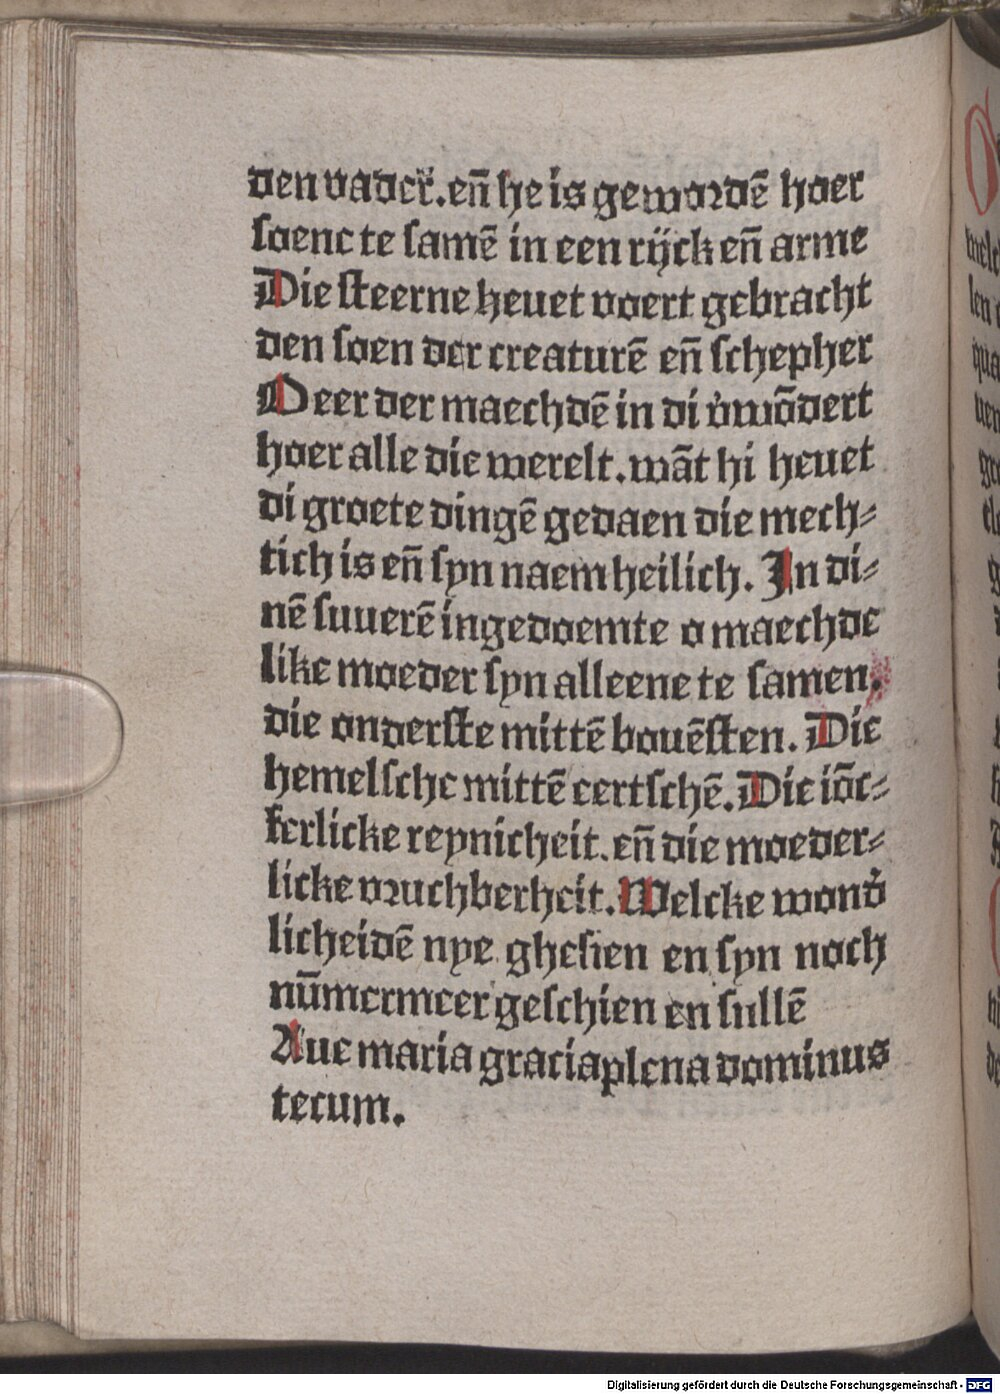 den vader. en̄ he is gewordē hoer
soenc te samē in een rijck en̄ arme
Die steerne heuet voert gebracht
den soen der creaturē en̄ schepher
Meer der maechdē in di v̓wōdert
hoer alle die werelt. wāt hi heuet
di groete dingē gedaen die mech⸗
tich is en̄ syn naem heilich. In di⸗
nē suuerē ingedoemte o maechde
like moeder syn alleene te samen.
die onderste mittē bouēsten. Die
hemelsche mittē eertschē. Die iōc⸗
ferlicke reynicheit. en̄ die moeder⸗
licke vruchberheit. Welcke wond̓
licheidē nye ghesien en syn noch
nūmermeer geschien en sullē
Aue maria gracia plena dominus
tecum.
Digitalisierung gefördert durch die Deutsche Forschungsgemeinschaft - DFG